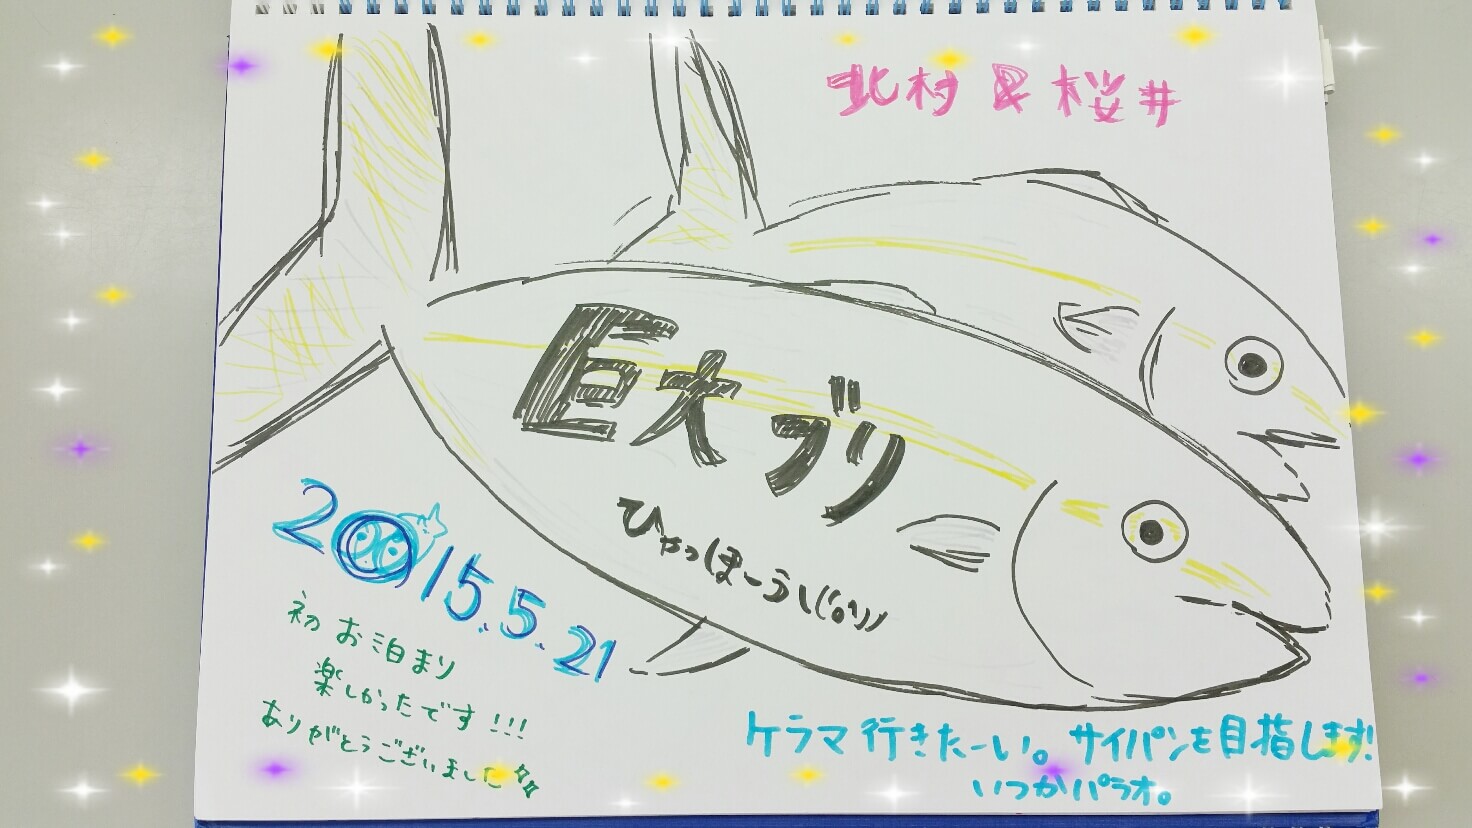 北村 & 桜井
巨大ブリ
ひゃっほーう\(^o^)/
2015.5.21
初お泊まり
楽しかったです!!!
ありがとうございました
ケラマ行きたーい。サイパンを目指します!
いつかパラオ。